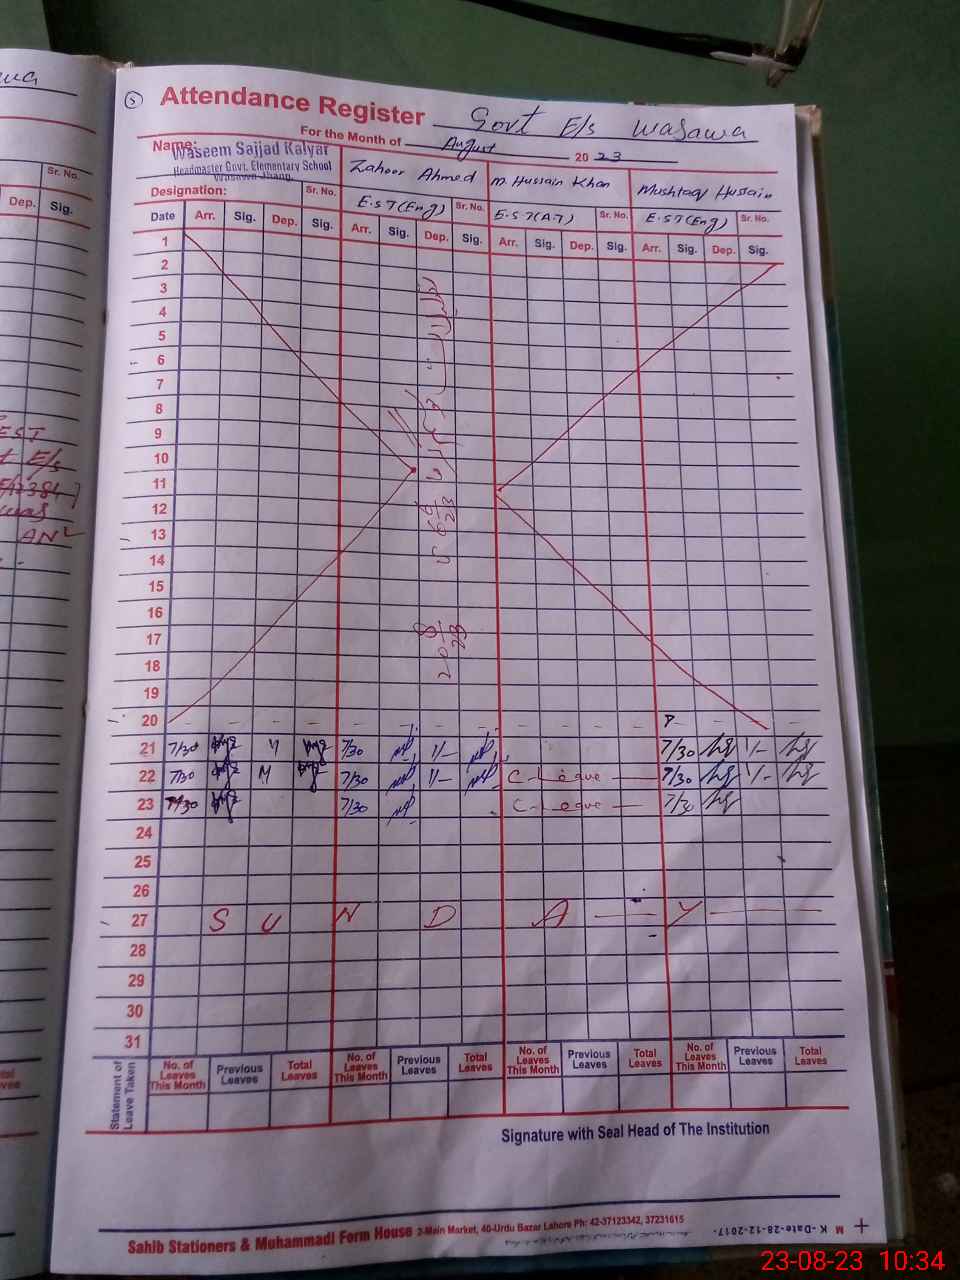 Attendance Register Govt E/s Wasawa
For the Month of August 2023
Name: Waseem Sajjad Kalyar
Headmaster Govt. Elementary School
Wasawa Jhang.
Zahoor Ahmed M. Hussain Khan Mushtaq Hussain
Designation: Sr. No. E.ST(Eng) Sr. No. E.ST(A.T) Sr. No. E.ST(Eng) Sr. No.
Date Arr. Sig. Dep. Sig. Arr. Sig. Dep. Sig. Arr. Sig. Dep. Sig. Arr. Sig. Dep. Sig.
1
2
3
4
5
6
7
8
9
10
11
12
13
14
15
16
17
18
19
20
21 7/30 7/30 7/30
22 7/30 7/30 C-Leave 7/30
23 7/30 7/30 C-Leave 7/30
24
25
26
27 S U N D A Y
28
29
30
31
Statement of Leave Taken
No. of Leaves This Month Previous Leaves Total Leaves No. of Leaves This Month Previous Leaves Total Leaves No. of Leaves This Month Previous Leaves Total Leaves No. of Leaves This Month Previous Leaves Total Leaves
Signature with Seal Head of The Institution
Sahib Stationers & Muhammadi Form House 2-Main Market, 40-Urdu Bazar Lahore Ph: 42-37123342, 37231615
M K-Date-28-12-2017.
Sr. No.
Dep. Sig.
EST
E/s
AN
23-08-23 10:34